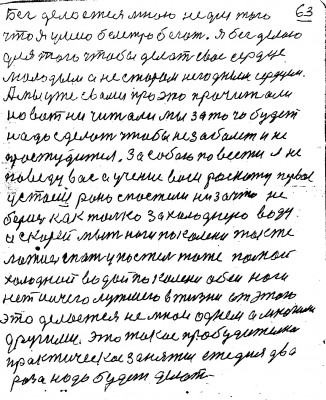 Бег делается мною не для того 63
что я умею быстро бегат. Я бег делаю
для того чтобы делат свое сердце
молодым а не старом негодным сердцем.
А мы уже с вами про это прочитали
но вот ни читали мы за то чо будет
надо сделат чтобы не заболет и не
простудится. За собою повести я не
поведу вас а учение вам раскажу первое
и с того рано с постели низачто не
берис как толко за холодную воду.
и скорей мыт ноги по колени также
ложис спат и постели тоже помой
холодной водой по колени обеи ноги
нет ничего лутшего в жизни от этого
это делается не мной одним а многими
другими. Это такое пробудителна
практическое занятие ежедня два
раза надо будет делат